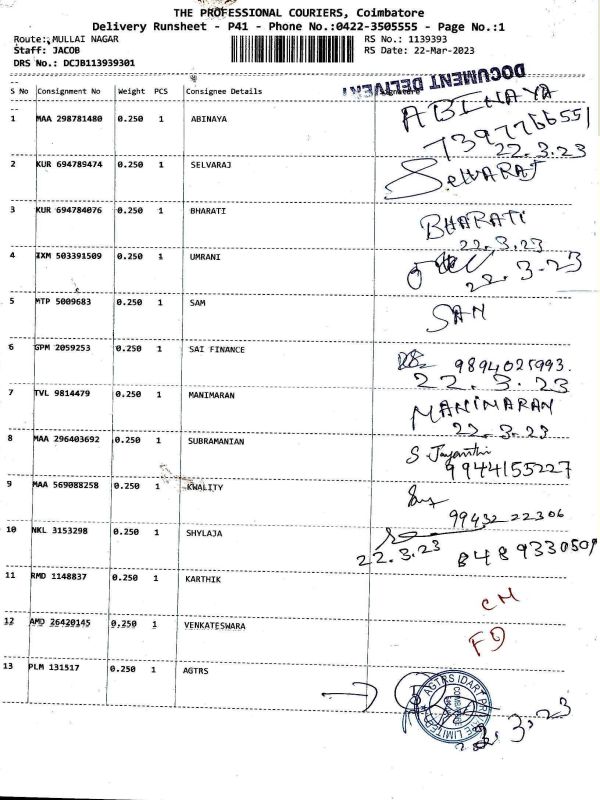 THE PROFESSIONAL COURIERS, Coimbatore
Delivery Runsheet - P41 - Phone No.:0422-3505555 - Page No.:1
Route: MULLAI NAGAR RS No.: 1139393
Staff: JACOB RS Date: 22-Mar-2023
DRS No.: DCJB113939301
DOCUMENT DELIVERY
S No Consignment No Weight PCS Consignee Details Signature
1 MAA 298781480 0.250 1 ABINAYA ABINAYA
7397766551
22.3.23
2 KUR 694789474 0.250 1 SELVARAJ SELVARAJ
3 KUR 694784076 0.250 1 BHARATI BHARATI
22.3.23
4 IXM 503391509 0.250 1 UMRANI
22.3.23
5 MTP 5009683 0.250 1 SAM SAM
6 GPM 2059253 0.250 1 SAI FINANCE 9894025993.
22.3.23
7 TVL 9814479 0.250 1 MANIMARAN MANIMARAN
22.3.23
8 MAA 296403692 0.250 1 SUBRAMANIAN S Jayanthi
9944155227
9 MAA 569088258 0.250 1 KWALITY
99432 22306
10 NKL 3153298 0.250 1 SHYLAJA
22.3.23 8489330509
11 RMD 1148837 0.250 1 KARTHIK CM
12 AMD 26420145 0.250 1 VENKATESWARA FD
13 PLM 131517 0.250 1 AGTRS
AGTRS IDART PRIVATE LIMITED
22.3.23